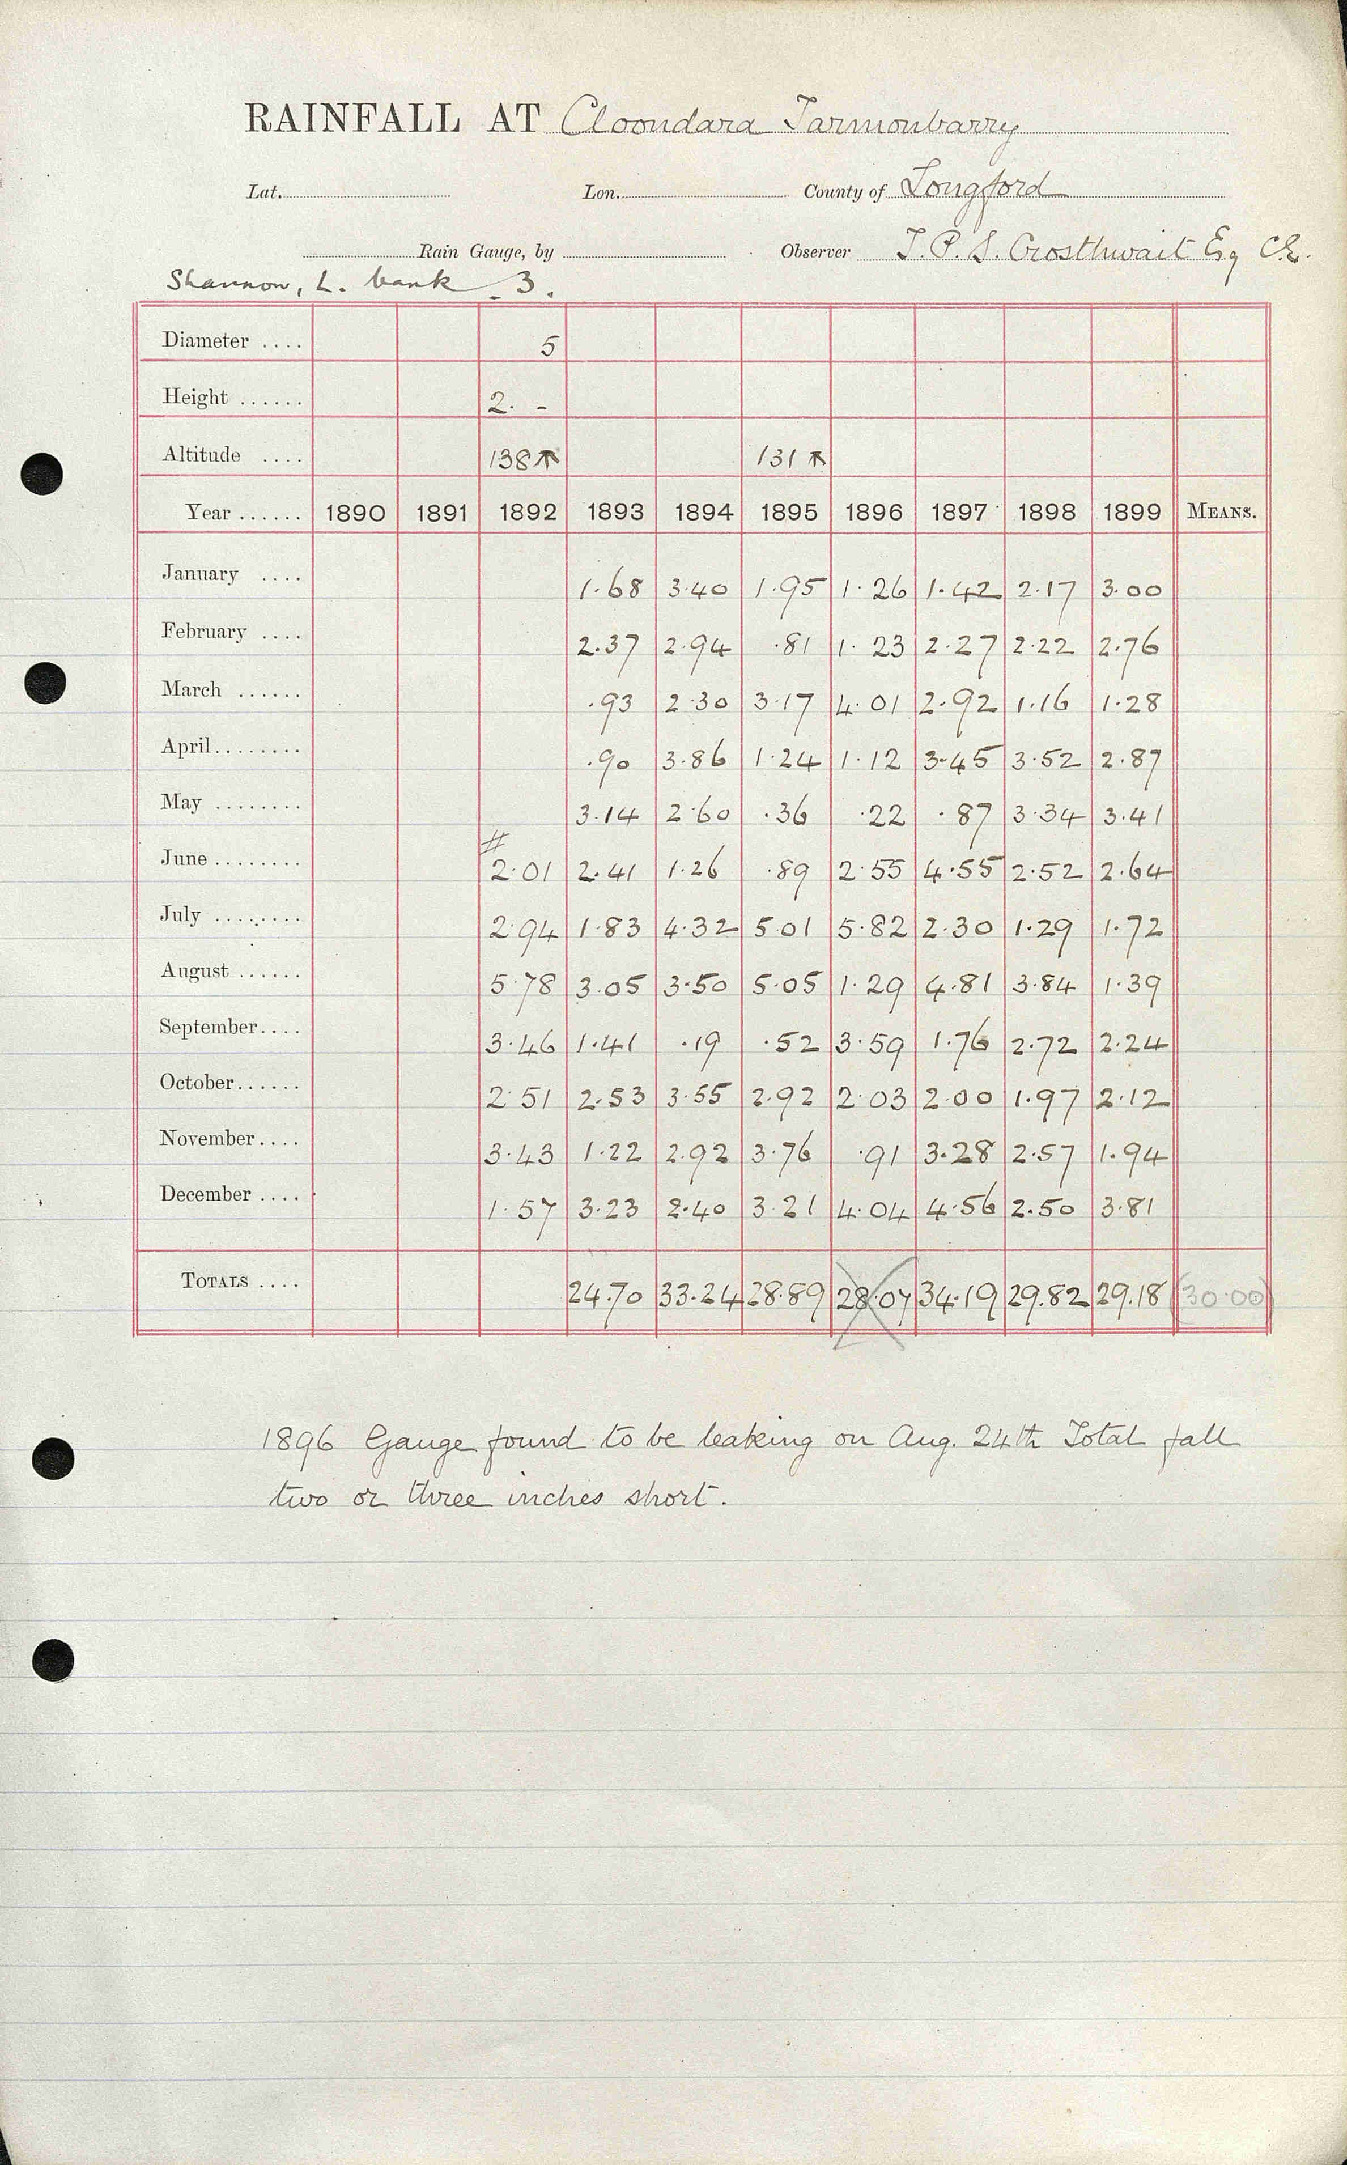 RAINFALL AT Cloondara Tarmonbarry
Lat. Lon. County of Longford
Rain Gauge, by Observer T. P. S. Crosthwait Esq CE.
Shannon, L. bank 3.
Diameter .... 5
Height ...... 2. -
Altitude .... 138 131
Year ...... 1890 1891 1892 1893 1894 1895 1896 1897 1898 1899 MEANS.
January .... 1.68 3.40 1.95 1.26 1.42 2.17 3.00
February .... 2.37 2.94 .81 1.23 2.27 2.22 2.76
March ...... .93 2.30 3.17 4.01 2.92 1.16 1.28
April........ .90 3.86 1.24 1.12 3.45 3.52 2.87
May ........ 3.14 2.60 .36 .22 .87 3.34 3.41
June ........ # 2.01 2.41 1.26 .89 2.55 4.55 2.52 2.64
July ........ 2.94 1.83 4.32 5.01 5.82 2.30 1.29 1.72
August ...... 5.78 3.05 3.50 5.05 1.29 4.81 3.84 1.39
September.... 3.46 1.41 .19 .52 3.59 1.76 2.72 2.24
October...... 2.51 2.53 3.55 2.92 2.03 2.00 1.97 2.12
November.... 3.43 1.22 2.92 3.76 .91 3.28 2.57 1.94
December .... 1.57 3.23 2.40 3.21 4.04 4.56 2.50 3.81
TOTALS .... 24.70 33.24 28.89 28.07 34.19 29.82 29.18 (30.00)
1896 Gauge found to be leaking on Aug. 24th Total fall
two or three inches short.